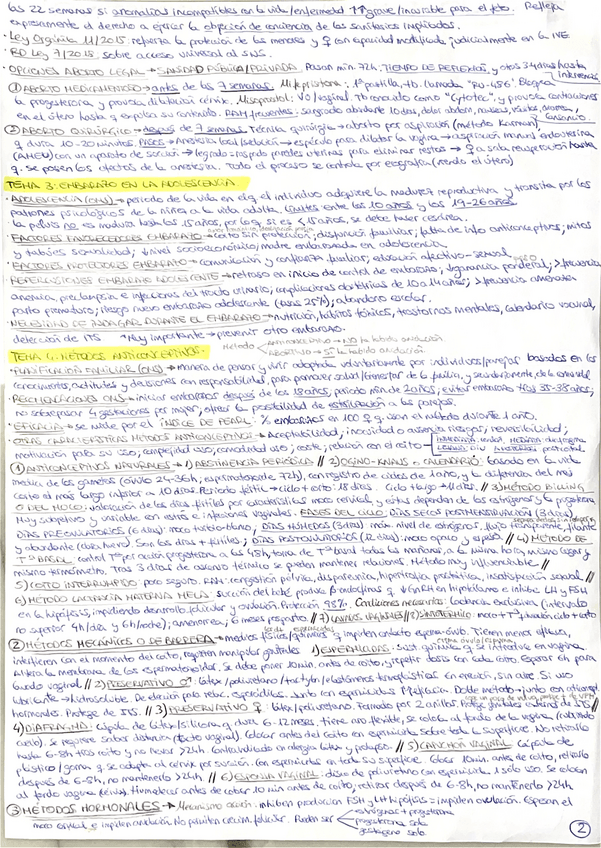 las 22 semanas si anomalías incompatibles con la vida/enfermedad ↑↑grave/incurable para el feto. Refleja
expresamente el derecho a ejercer la objeción de conciencia de los sanitarios implicados.
· Ley Orgánica 11/2015: refuerza la protección de las menores y ♀ con capacidad modificada judicialmente en la IVE
· RD Ley 7/2018 sobre acceso universal al SNS.
· OPCIONES ABORTO LEGAL → SANIDAD PÚBLICA/PRIVADA. Pasan mín. 72h. TIEMPO DE REFLEXIÓN, y otros 3-4 días hasta
① ABORTO MEDICAMENTOSO → antes de las 7 semanas. Mifepristona: 1ª pastilla, tb. llamada "RU-486". Bloquea
la progesterona, y provoca dilatación cérvix. Misoprostol: VO/vaginal. Tb conocido como "Cytotec", y provoca contracciones
en el útero hasta q expulsa su contenido. RAM frecuentes: sangrado abundante 10 días, dolor abdom, náuseas, vómitos, diarrea,
② ABORTO QUIRÚRGICO → después de 7 semanas. Técnica quirúrgica → aborto por aspiración (método Karman)
q dura 10-20 minutos. PASOS → Anestesia local/sedación → espéculo para dilatar la vagina → aspiración manual endouterina
(AMEU) con un aparato de succión → legrado = raspado paredes uterinas para eliminar restos → ♀ a sala recuperación hasta
q. se pasen los efectos de la anestesia. Todo el proceso se controla por ecografía (renda el útero)
TEMA 3: EMBARAZO EN LA ADOLESCENCIA
· ADOLESCENCIA (OMS) → periodo de la vida en el q el individuo adquiere la madurez reproductiva y transita por los
patrones psicológicos de la niñez a la vida adulta. Límites entre los 10 años y los 19-26 años.
la pelvis no es madura hasta los 15 años, por lo q si es < 15 años, se debe hacer cesárea.
· FACTORES FAVORECEDORES EMBARAZO → coito sin protección; disfunción familiar; falta de info anticonceptivos; mitos
y tabúes sexualidad; ↓ nivel socioeconómico; madre embarazada en adolescencia.
· FACTORES PROTECTORES EMBARAZO → comunicación y confianza familiar; educación afectivo-sexual
· REPERCUSIONES EMBARAZO ADOLESCENTE → retraso en inicio de control de embarazo; ↓ganancia ponderal; >frecuencia
anemia, preeclampsia e infecciones del tracto urinario; complicaciones obstétricas de 10 a 14 años; > frecuencia amenaza
parto prematuro; riesgo nuevo embarazo adolescente (2 años 25%); abandono escolar.
· NECESIDAD DE INDAGAR DURANTE EL EMBARAZO → nutrición, hábitos tóxicos, trastornos mentales, calendario vacunal,
detección de ITS *Muy importante → prevenir otro embarazo.
Método ANTICONCEPTIVO → NO ha habido ovulación
ABORTIVO → SÍ ha habido ovulación
TEMA 4: MÉTODOS ANTICONCEPTIVOS.
· PLANIFICACIÓN FAMILIAR (OMS) → manera de pensar y vivir adoptada voluntariamente por individuos/parejas basados en los
conocimientos, actitudes y decisiones con responsabilidad, para promover salud/bienestar de la familia, y secundariamente, de la comunidad
· RECOMENDACIONES OMS → iniciar embarazos después de los 18 años; periodo mín. de 2 años; evitar embarazo tras 35-38 años;
no sobrepasar 4 gestaciones por mujer; ofrecer la posibilidad de esterilización a las parejas.
· EFICACIA → se mide por el ÍNDICE DE PEARL: % embarazos en 100 ♀ q. usan el método durante 1 año.
· OTRAS CARACTERÍSTICAS MÉTODOS ANTICONCEPTIVOS → Aceptabilidad; inocuidad o ausencia riesgos; reversibilidad;
motivación para su uso; complejidad uso; comodidad uso; coste; relación con el coito
① ANTICONCEPTIVOS NATURALES → 1) ABSTINENCIA PERIÓDICA // 2) OGINO-KNAUS o CALENDARIO: basado en la vida
media de los gametos (óvulo 24-36h; espermatozoide 72h), con registro de ciclos de 1 año, y la diferencia del más
corto al más largo inferior a 10 días. Periodo fértil → ciclo + corto: 18 días Ciclo + largo: 11 días. // 3) MÉTODO BILLING
O DEL MOCO: valoración de los días fértiles por características moco cervical, y estas dependen de los estrógenos y la progesterona
Muy subjetivo y variable en varios e infecciones vaginales. FASES DEL CICLO: DÍAS SECOS POSTMENSTRUACIÓN (3 días)
DÍAS PREOVULATORIOS (6 días): moco turbio-blanco; DÍAS HÚMEDOS (3 días): máx. nivel de estrógenos, flujo transparente, filante
y abundante (clara huevo). Son los días + fértiles; DÍAS POSTOVULATORIOS (12 días): moco opaco y espeso // 4) MÉTODO DE
Tª BASAL: control Tª por acción progesterona a las 48h, toma de Tª basal todas las mañanas, a la misma hora, mismo lugar y
mismo termómetro. Tras 3 días de ascenso térmico se pueden mantener relaciones. Método muy influenciable. //
5) COITO INTERRUMPIDO: poco seguro. RAM: congestión pélvica, dispareunia, hipertrofia prostática, insatisfacción sexual //
6) MÉTODO LACTANCIA MATERNA MELA: Succión del bebé produce β endorfinas q. ↓ GnRH en hipotálamo e inhibe LH y FSH
en la hipófisis, impidiendo desarrollo folicular y ovulación. Protección 98%. Condiciones necesarias: lactancia exclusiva (intervalo
no superior 4h/día y 6h/noche); amenorrea; 6 meses posparto // 7) LAVADOS VAGINALES // 8) SINTOTÉRMICO: moco + Tª y lactancia + coito
② MÉTODOS MECÁNICOS O DE BARRERA → medios físicos/químicos q impiden contacto esperma-óvulo. Tienen menor eficacia,
interfieren con el momento del coito, requieren manipular genitales 1) ESPERMICIDAS: sust. química q se introduce en vagina,
altera la membrana de los espermatozoides. Se debe poner 10 min. antes de coito, y repetir dosis con cada coito. Esperar 6h para
lavado vaginal // 2) PRESERVATIVO ♂: látex/poliuretano/tactylon/elastómeros termoplásticos en erección, sin aire. Si uso
lubricante → hidrosoluble. De elección para relac. esporádicas. Junto con espermicidas ↑eficacia. Doble método → junto con anticoncep.
hormonales. Protege de ITS. // 3) PRESERVATIVO ♀: látex/poliuretano. Formado por 2 anillos. Protege genitales externos de ITS //
4) DIAFRAGMA: Cúpula de látex/silicona q dura 6-12 meses, tiene aro flexible, se coloca al fondo de la vagina (cubriendo
cuello). Se requiere saber distancia (tacto vaginal) Colocar antes del coito con espermicida sobre toda la superficie. No retirarlo
hasta 6-8h tras coito y no llevar > 24h. Contraindicado en alergia látex y prolapso. // 5) CAPUCHÓN VAGINAL: Cúpula de
plástico/goma q se adapta al cérvix por succión. Con espermicidas en toda su superficie. Colocar 10 min. antes de coito, retirarlo
después de 6-8h, no mantenerlo > 24h // 6) ESPONJA VAGINAL: disco de poliuretano con espermicida. 1 solo uso. Se coloca
al fondo vagina (cérvix). Humedecer antes de colocar 10 min antes de coito, retirar después de 6-8h, no mantenerlo > 24h
③ MÉTODOS HORMONALES → Mecanismo acción: inhiben producción FSH y LH hipófisis = impiden ovulación. Espesan el
moco cervical e impiden ovulación. No permiten crecim. folicular. Pueden ser
estrógenos + progesterona
progesterona sola
gestágeno solo
②